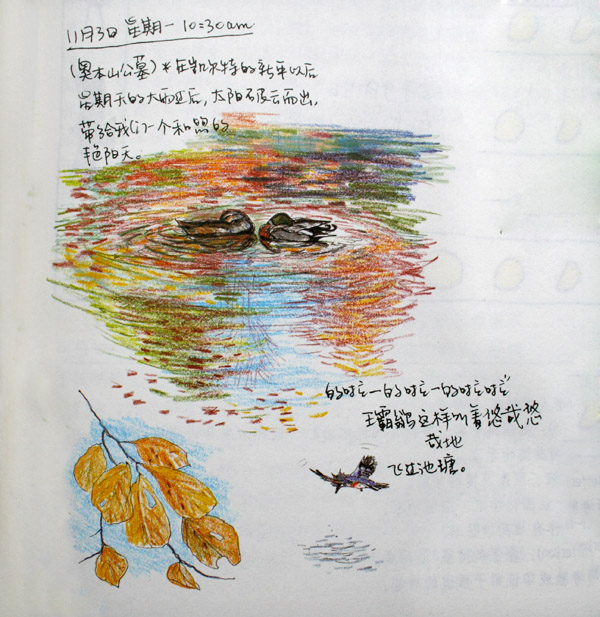 11月3日 星期一 10:30am
(奥本山公墓)*在凯尔特的新年以后
星期天的大雨过后,太阳破云而出,
带给我们一个和煦的
艳阳天。
王霸鹟这样叫着悠哉悠
哉地
飞过池塘。